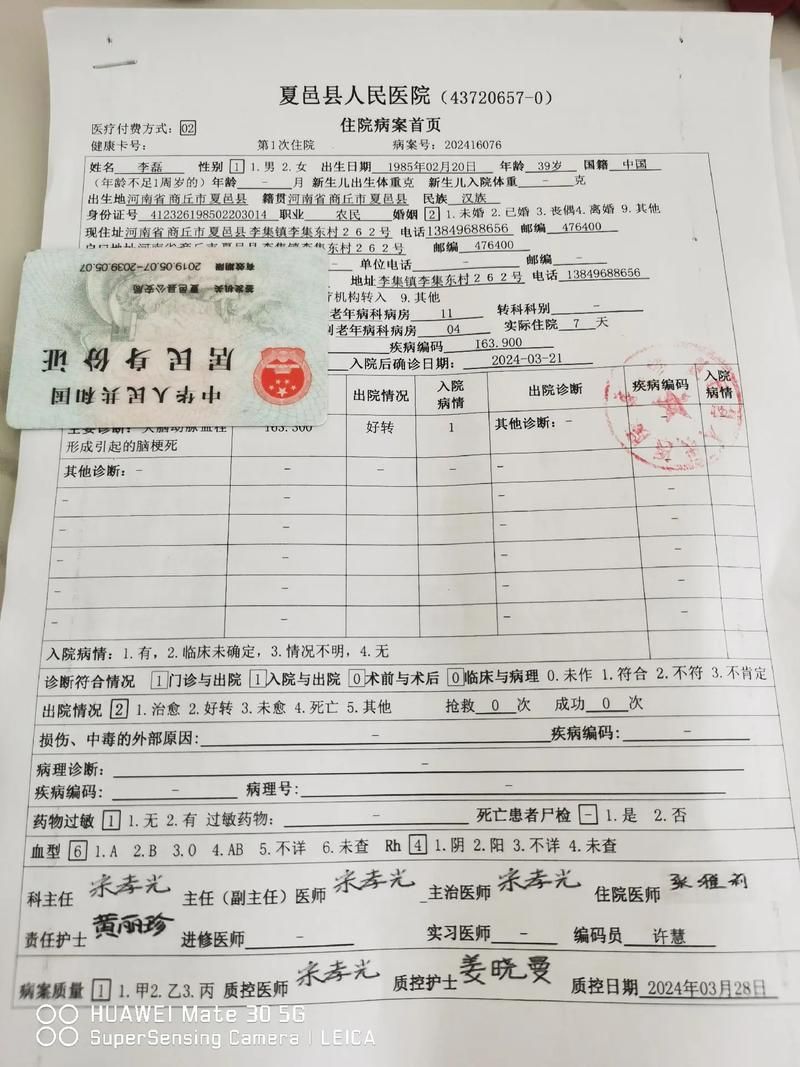 夏邑县人民医院（43720657-0）
医疗付费方式：02
住院病案首页
健康卡号： 第1次住院 病案号：202416076
姓名 李磊 性别 1 1.男 2.女 出生日期 1985年02月20日 年龄 39岁 国籍 中国
（年龄不足1周岁的）年龄 - 月 新生儿出生体重克 新生儿入院体重 - 克
出生地河南省商丘市夏邑县 籍贯河南省商丘市夏邑县 民族 汉族
身份证号 412326198502203014 职业 农民 婚姻 2 1.未婚 2.已婚 3.丧偶4.离婚 9.其他
现住址河南省商丘市夏邑县李集镇李集东村262号 电话13849688656 邮编 476400
户口地址河南省商丘市夏邑县李集镇李集东村262号 邮编 476400
- 单位电话 - 邮编 -
地址李集镇李集东村262号 电话 13849688656
疗机构转入 9.其他
老年病科病房 11 转科科别 -
老年病科病房 04 实际住院 7 天
疾病编码 I63.900
入院后确诊日期：2024-03-21
中华人民共和国
居民身份证
签发机关 夏邑县公安局
有效期限 2019.05.07-2039.05.07
出院情况 入院病情 出院诊断 疾病编码 入院病情
主要诊断：大脑动脉血栓 I63.300 好转 1 其他诊断：- -
形成引起的脑梗死
其他诊断：- - - -
- - - -
- - - -
- - - -
- - - -
- - - -
入院病情：1.有，2.临床未确定，3.情况不明，4.无
诊断符合情况 1门诊与出院 1入院与出院 0术前与术后 0临床与病理 0.未作 1.符合 2.不符 3.不肯定
出院情况 2 1.治愈 2.好转 3.未愈 4.死亡 5.其他 抢救 0 次 成功 0 次
损伤、中毒的外部原因：- 疾病编码：-
病理诊断：-
疾病编码：- 病理号：-
药物过敏 1 1.无 2.有 过敏药物：- 死亡患者尸检 - 1.是 2.否
血型 6 1.A 2.B 3.O 4.AB 5.不详 6.未查 Rh 4 1.阴 2.阳 3.不详 4.未查
科主任 宋孝光 主任（副主任）医师 宋孝光 主治医师 宋孝光 住院医师 张雅莉
责任护士 黄丽珍 进修医师 - 实习医师 - 编码员 许慧
病案质量 1 1.甲2.乙3.丙 质控医师 宋孝光 质控护士 姜晓曼 质控日期 2024年03月28日
HUAWEI Mate 30 5G
SuperSensing Camera | LEICA